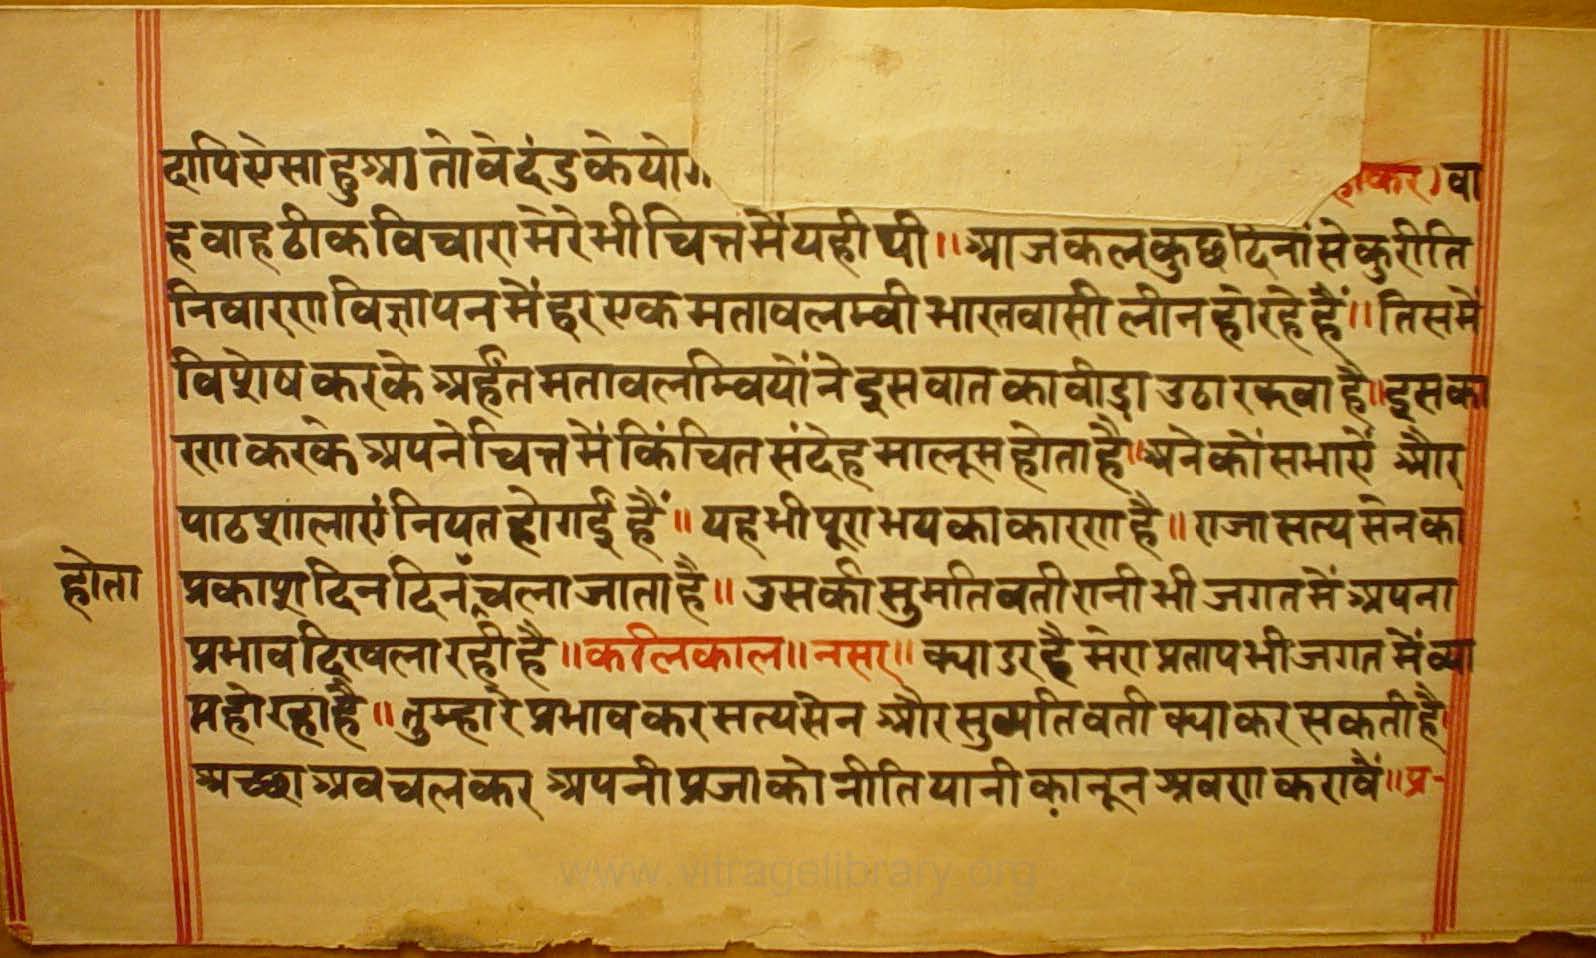 दापि ऐसा हुआ तो वे दंड के योग होकर) वा
ह वाह ठीक विचारा मेरे भी चित्त मैं यही थी ॥ आज कल कुछ दिनों से कुरीति
निवारण विज्ञापन में हर एक मतावलम्वी भारतवासी लीन हो रहे हैं ॥ तिस में
विशेष करके अर्हंत मतावलम्वियों ने इस वात का वीड़ा उठा रक्वा है ॥ इस का
रण करके अपने चित्त में किंचित संदेह मालूस होता है ॥ अनेकों सभाऐं और
पाठशालाएं नियत हो गईं हैं ॥ यह भी पूरा भय का कारण है ॥ राजा सत्यसेन का
होता
प्रकाश दिन दिनं चला जाता है ॥ उसकी सुमतिवती रानी भी जगत में अपना
प्रभाव दिखला रही है ॥ कलिकाल ॥ नसर ॥ क्या डर है मेरा प्रताप भी जगत में व्या
प्त हो रहा है ॥ तुम्हारे प्रभाव कर सत्यसेन और सुव्यतिवती क्या कर सकती है
अच्छा अव चलकर अपनी प्रजा को नीति यानी क़ानून श्रवण करावैं ॥ प्र-
www.vitragelibrary.org